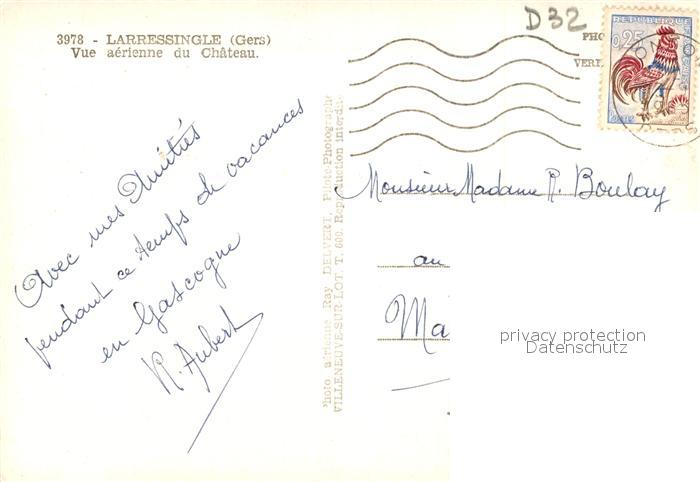 D32
3978 - LARRESSINGLE (Gers)
Vue aérienne du Château.
REPUBLIQUE
0,25
Avec mes Amitiés
pendant ce temps de vacances
en Gascogne
R. Aubert
Photo aérienne Ray DELVERT, Photo-Photographe
VILLENEUVE-SUR-LOT. T. 600. Reproduction interdite
Monsieur Madame R. Boulay
au
Ma
privacy protection
Datenschutz